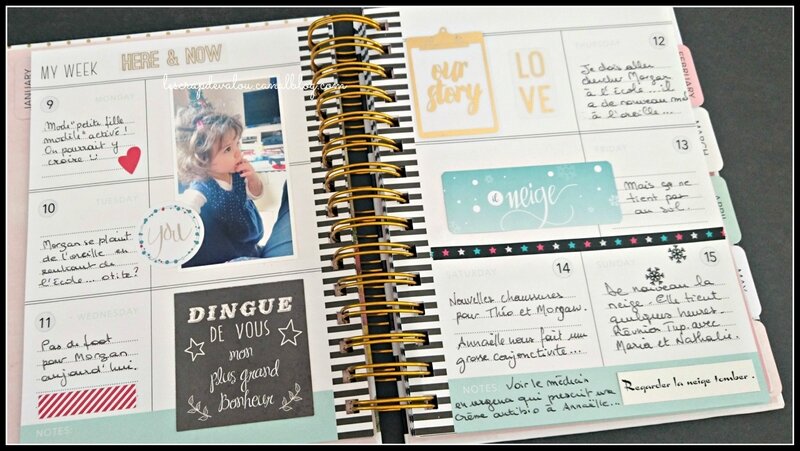 MY WEEK HERE & NOW
lescrapdevalou.canalblog.com
JANUARY
9 MONDAY
Mode "petite fille
modèle" activé !
On pourrait y
croire
10 TUESDAY
Morgan se plaint
de l'oreille en
rentrant de
l'École... otite?
you
11 WEDNESDAY
Pas de foot
pour Morgan
aujourd'hui.
NOTES:
DINGUE
DE VOUS
mon
plus grand
Bonheur
our
story
LO
VE
THURSDAY 12
Je dois aller
chercher Morgan
à l'École... il
a de nouveau mal
à l'oreille...
13
il neige
Mais ça ne
tient pas
au sol.
SATURDAY 14
Nouvelles chaussures
pour Théo et Morgan.
Annaëlle nous fait une
grosse conjonctivite...
SUNDAY 15
De nouveau la
neige. Elle tient
quelques heures.
Réunion Tup. avec
Maria et Nathalie.
NOTES: Voir le médecin
en urgence qui prescrit une
crème antibio à Annaëlle...
Regarder la neige tomber.
FEBRUARY
MARCH
APRIL
MAY